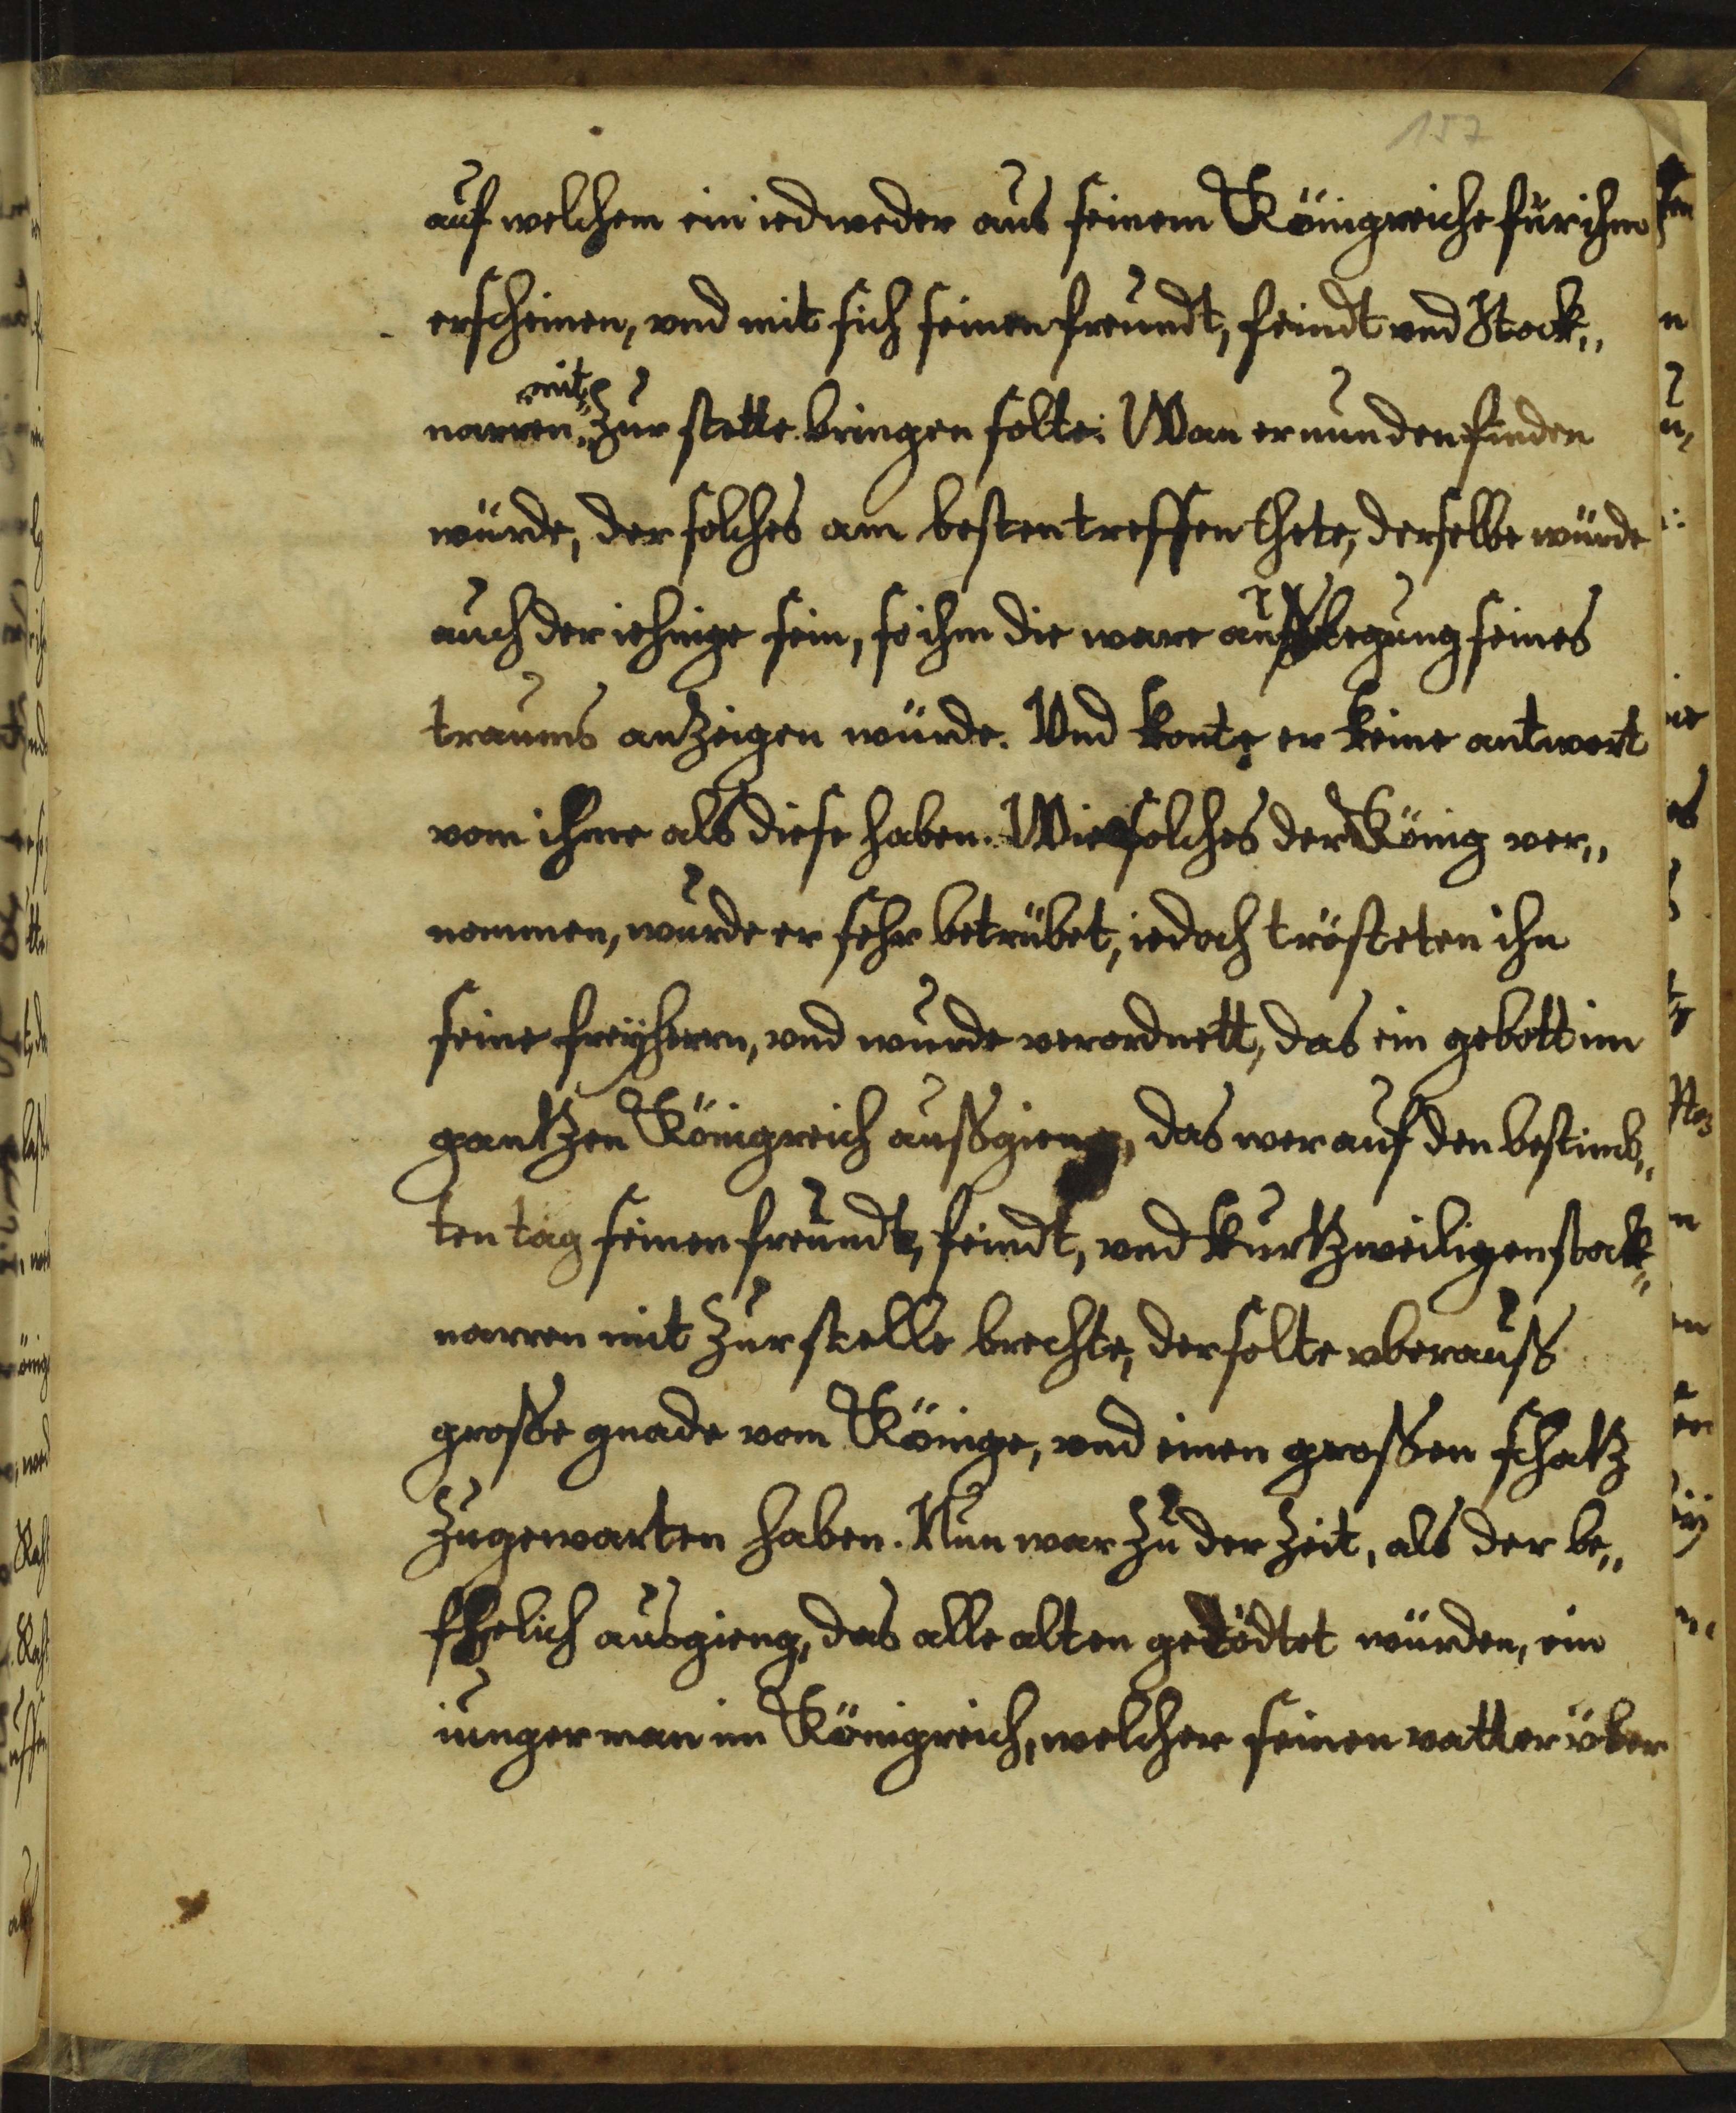 157
auf welchem ein iedweder aus seinem Königreiche für ihm
erscheinen, vnd mit sich seinen freundt, feindt vnd Stock„
mit
narren„ zur stette bringen solte: Wan er nun den finden
würde, der solches am besten treffen thete, derselbe würde
auch der iehnige sein, so ihm die ware außlegung seines
traums anzeigen würde. Vnd konte er keine antwort
vom ihme als diese haben. Wie solches der König ver„
nommen, wurde er sehr betrübet, iedoch trösteten ihn
seine freyherrn, vnd wurde verordnett, das ein gebott im
gantzen Königreich außgieng, das wer auf den bestimb„
ten tag seinen freundt, feindt, vnd kurtzweiligen stock„
narren mit zur stelle brechte, der solte vberauß
große gnade vom Könige, vnd einen großen schatz
zugewarten haben. Nun war zu der Zeit, als der be„
fhelich ausgieng, das alle alten getödtet würden, ein
iunger man im Königreich, welcher seinen vatter über